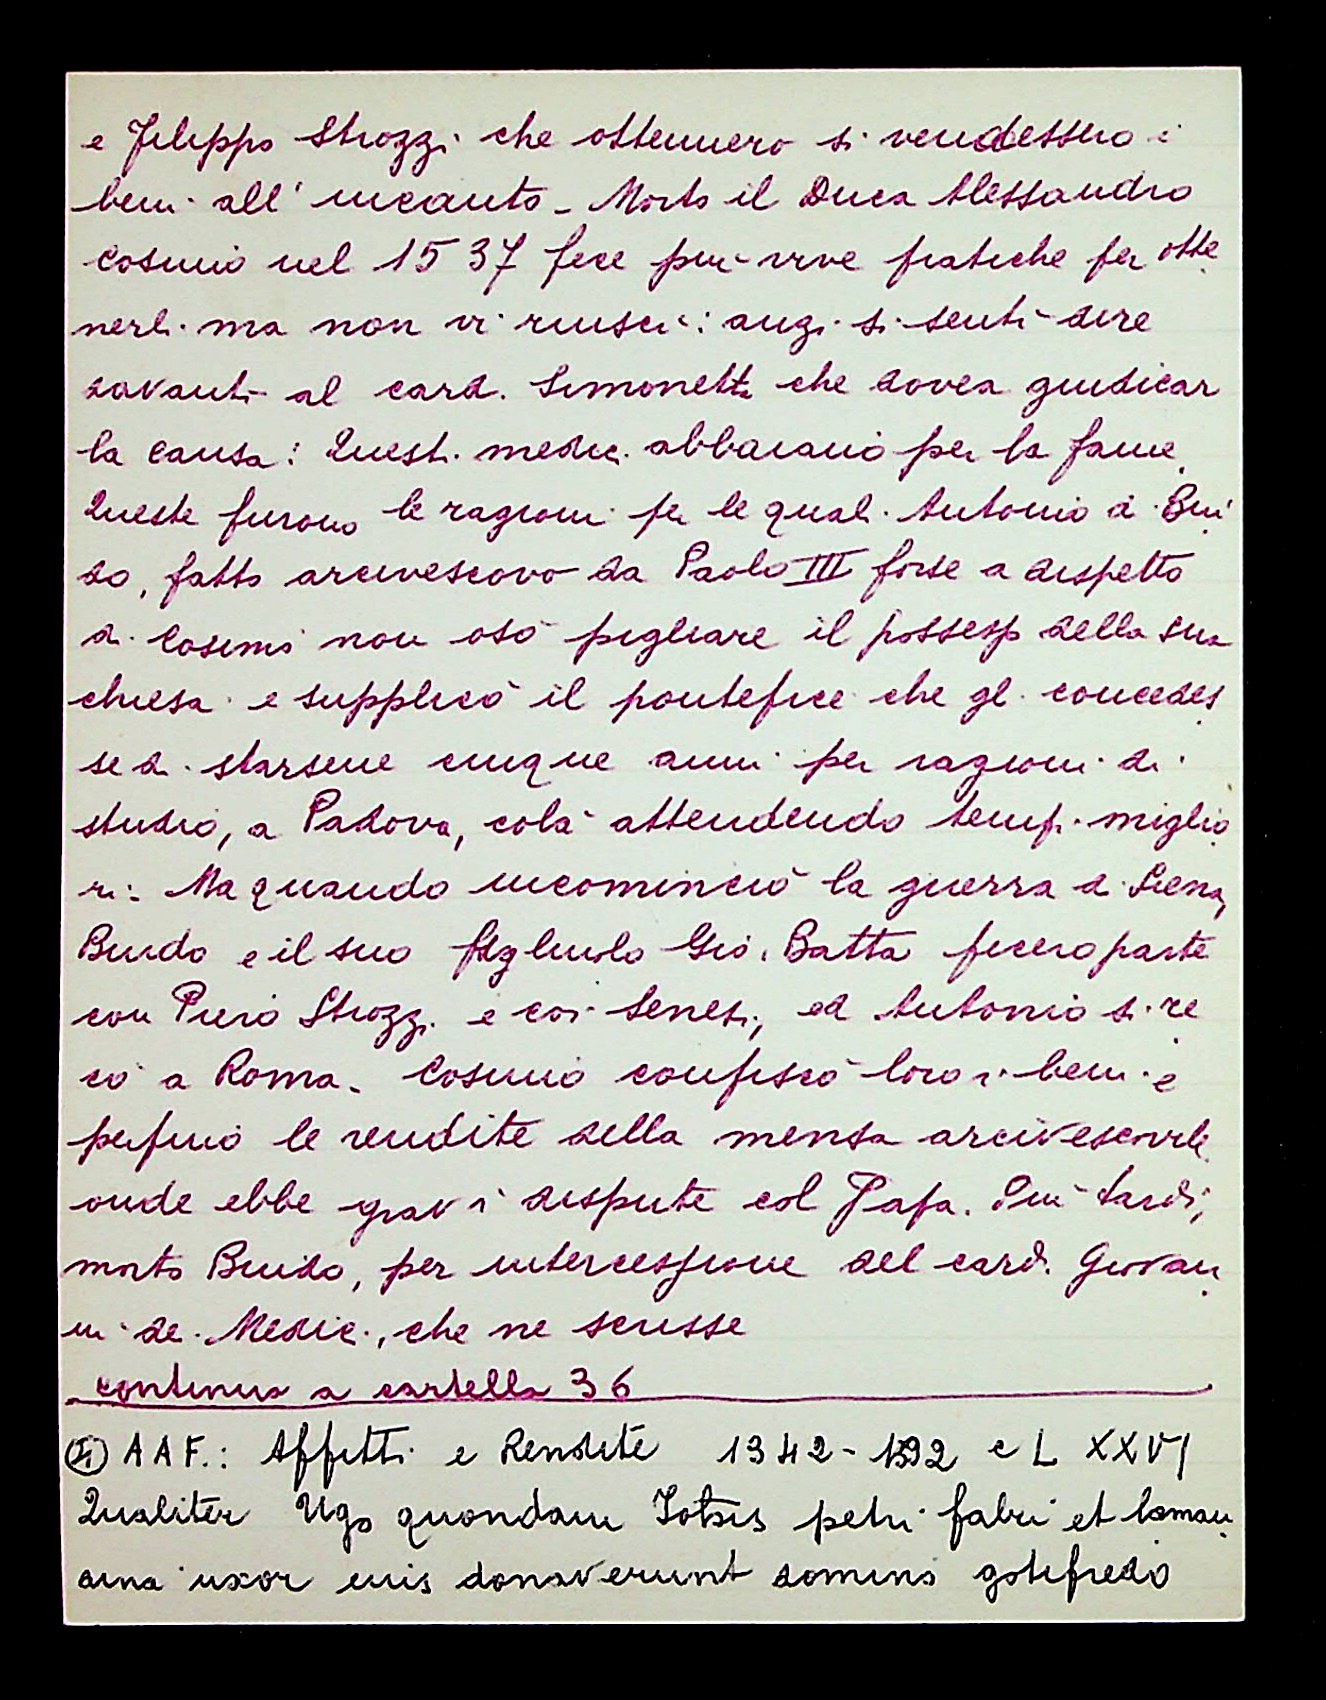 e Filippo Strozzi che ottennero si vendessero i
beni all' incanto - Morto il Duca Alessandro
Cosimo nel 1537 fece più vive pratiche per otte
nerli ma non vi riuscì: anzi si sentì dire
davanti al card. Simonetta che dovea giudicar
la causa: Questi medici abbaiano per la fame.
Queste furono le ragioni per le quali Antonio di Bin
do, fatto arcivescovo da Paolo III forse a dispetto
di Cosimo non osò pigliare il possesso della sua
chiesa e supplicò il pontefice che gli concedes
se di starsene cinque anni per ragioni di
studio, a Padova, colà attendendo tempi miglio
ri: Ma quando incominciò la guerra di Siena,
Bindo e il suo figliuolo Gio. Batta fecero parte
con Piero Strozzi e coi Senesi, ed Antonio si re
cò a Roma. Cosimo confiscò loro i beni e
perfino le rendite della mensa arcivescovile
onde ebbe gravi dispute col Papa. Più tardi,
morto Bindo, per intercessione del card. Giovan
ni de Medici, che ne scrisse
continua a cartella 36
AAF.: Affitti e Rendite 1342-1392 c L XXVI
Qualiter Ugo quondam petri fabri et
uxor eius donaverunt domino gotifredo